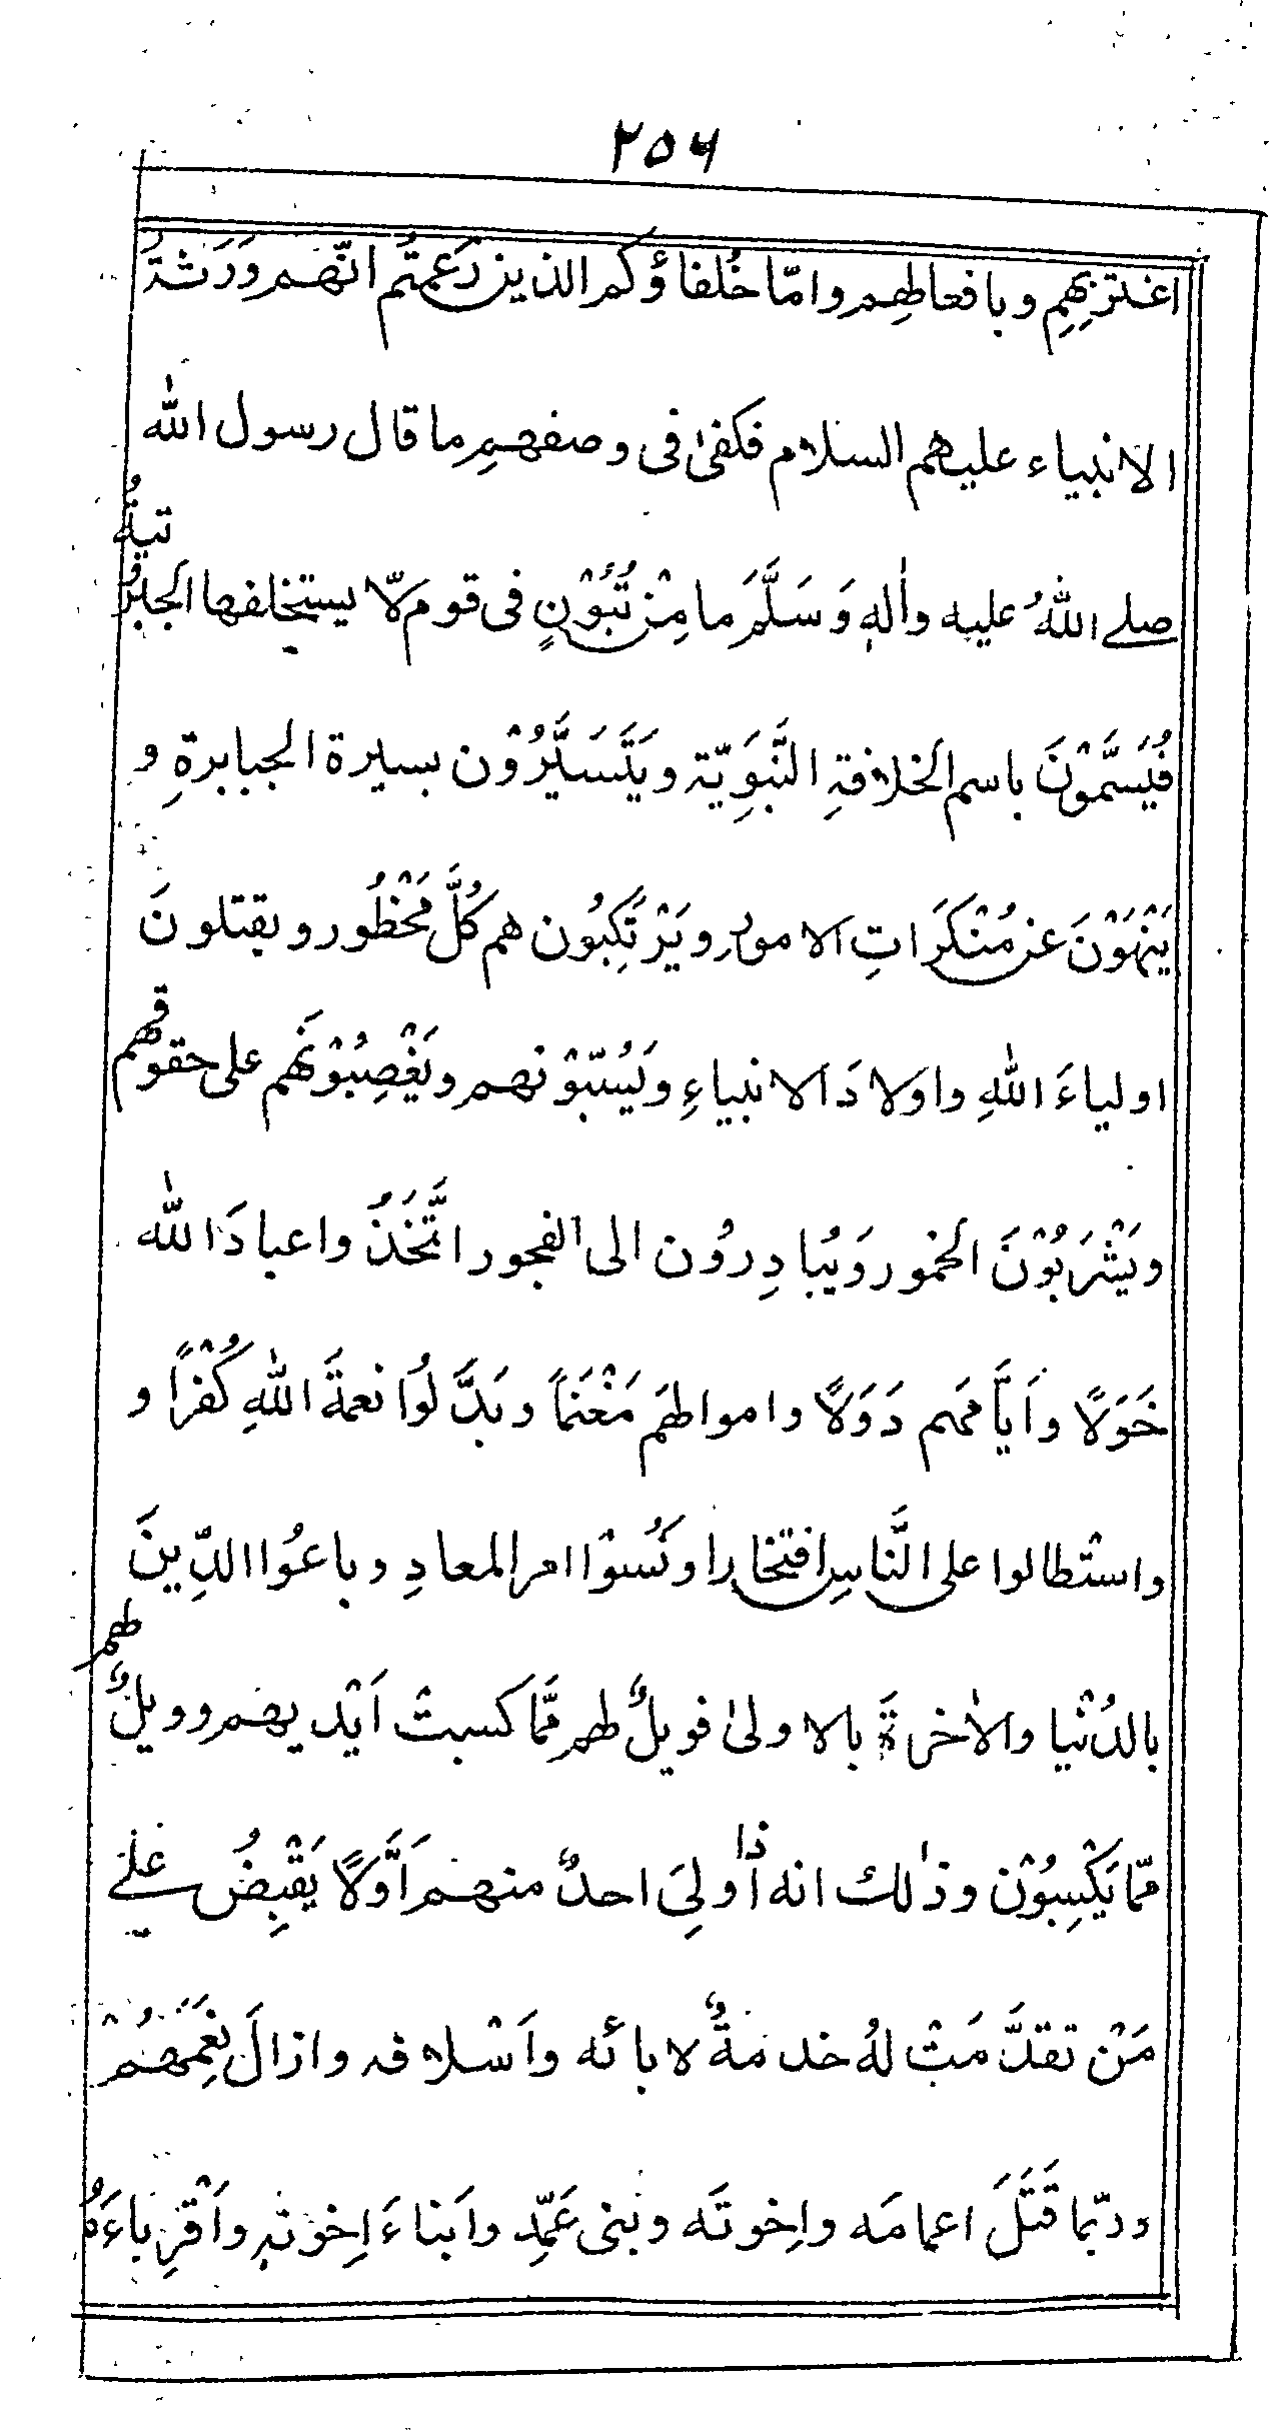 ۲۵۶
اغتربهم وبافعالهم واما خُلفاؤكم الذين زَعمتُم انّهم وَرَثۃُ
الانبياء عليهم السلام فكفىٰ فى وصفهم ما قال رسول الله
صلے اللّٰهُ عليه واٰلهٖ وَسَلَّمَ ما مِنْ نُبُوْتٍ فى قوم لّا يستخلفها الجابرۃُ
فُيَسَمَّوْنَ باسم الخلافۃِ النَّبَوِيّۃ ويَتَسَيَّرُوْن بسيرة الجبابرةِ و
يَنْهَوْنَ عن مُنْكَرَاتِ الامور ويَرْتَكِبُون هم كُلَّ مَحْظُور ويقتلونَ
اولياءَ اللّٰهِ واولادَ الانبياءِ ويَسُبّوْنهم ويَغْصِبُوْنَهم على حقوقهم
ويَشْرَبُوْنَ الخمور وَيُبادِرُون الى الفجور اتَّخَذُوا عبادَ اللّٰه
خَوَلًا واَيَّامَهم دَوَلًا واموالهم مَغْنَمًا وبَدَّلُوْا نعمةَ اللّٰهِ كُفْرًا و
واسْتطالوا على النَّاس افتخارا ونَسُوْا امر المعادِ وباعُوا الدِّينَ
بالدُنْيا والاٰخرةَ بالاولىٰ فويلٌ لهم مّمَا كسبتْ اَيْديهم وويلٌ لهم
ممّا يَكْسِبُوْن وذٰلك انه اذا وُلِىَ احدٌ منهم اَوَّلًا يَقْبِضُ علےٰ
مَنْ تقدَّمَتْ لهُ خدمۃٌ لابائه واَسْلافه وازالَ نِعَمَهُمْ
وربّما قَتَلَ اعمامَه واِخوتَه وبنى عَمِّه وابناءَ اِخوتهٖ واَقْرِباءَهُ